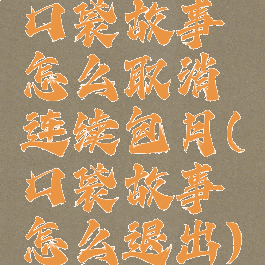 口袋故事
怎么取消
连续包月(
口袋故事
怎么退出)